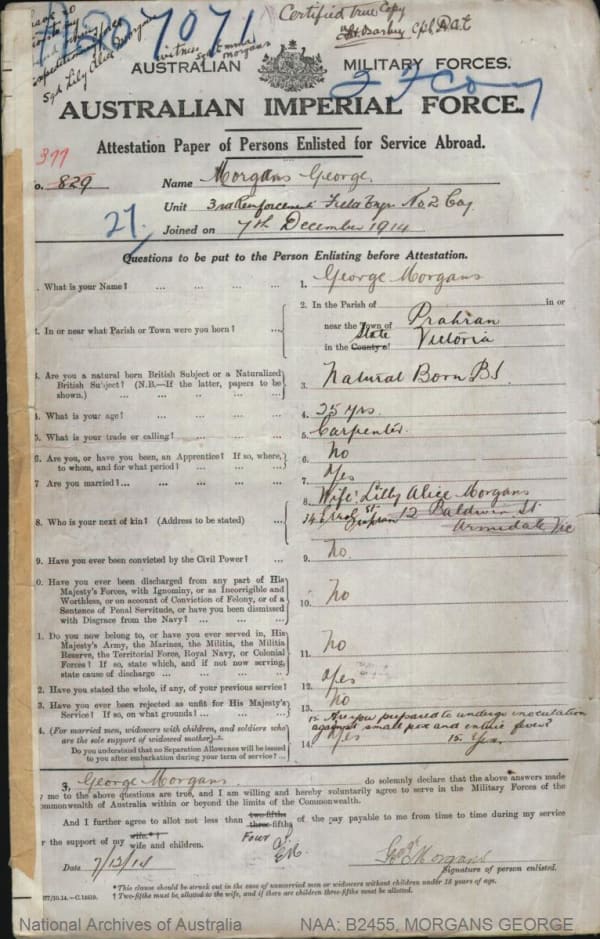 Certified true Copy
Cpl. D.A.C
7071
witness
Sgd Lily Alice Morgans
AUSTRALIAN MILITARY FORCES.
2 F Coy
AUSTRALIAN IMPERIAL FORCE.
Attestation Paper of Persons Enlisted for Service Abroad.
377
o. 829 Name Morgans George.
Unit 3rd Reinforcement Field Engr No 2 Coy
27. Joined on 7th December 1914
Questions to be put to the Person Enlisting before Attestation.
. What is your Name? ... ... ... ... 1. George Morgans
2. In or near what Parish or Town were you born? ... 2. In the Parish of in or
near the Town of Prahran
in the County of State Victoria
3. Are you a natural born British Subject or a Naturalized British Subject? (N.B.—If the latter, papers to be shown.) ... ... ... ... ... 3. Natural Born BS.
4. What is your age? ... ... ... ... 4. 25 yrs.
5. What is your trade or calling? ... ... ... 5. Carpenter.
6. Are you, or have you been, an Apprentice? If so, where, to whom, and for what period? ... ... ... 6. No
7 Are you married?... ... ... ... ... 7. Yes
8. Who is your next of kin? (Address to be stated) ... 8. Wife: Lilly Alice Morgans
14 St 12 Baldwin St
Armidale Vic
9. Have you ever been convicted by the Civil Power? ... 9. No.
0. Have you ever been discharged from any part of His Majesty's Forces, with Ignominy, or as Incorrigible and Worthless, or on account of Conviction of Felony, or of a Sentence of Penal Servitude, or have you been dismissed with Disgrace from the Navy? ... ... ... 10. No
1. Do you now belong to, or have you ever served in, His Majesty's Army, the Marines, the Militia, the Militia Reserve, the Territorial Force, Royal Navy, or Colonial Forces? If so, state which, and if not now serving, state cause of discharge ... ... ... ... 11. No
2. Have you stated the whole, if any, of your previous service? 12. Yes
3. Have you ever been rejected as unfit for His Majesty's Service? If so, on what grounds? ... ... ... 13. No
15. Are you prepared to undergo inoculation
against small pox and enteric fever?
4. (For married men, widowers with children, and soldiers who are the sole support of widowed mother)—
Do you understand no Separation Allowance will be issued to you after embarkation during your term of service?... 14. Yes 15. Yes.
I, George Morgans do solemnly declare that the above answers made
y me to the above questions are true, and I am willing and hereby voluntarily agree to serve in the Military Forces of the
ommonwealth of Australia within or beyond the limits of the Commonwealth.
And I further agree to allot not less than two-fifths three-fifths Four of the pay payable to me from time to time during my service
r the support of my wife.*† wife and children.
Date 7/12/14 Geo Morgans
Signature of person enlisted.
* This clause should be struck out in the case of unmarried men or widowers without children under 18 years of age.
† Two-fifths must be allotted to the wife, and if there are children three-fifths must be allotted.
National Archives of Australia NAA: B2455, MORGANS GEORGE